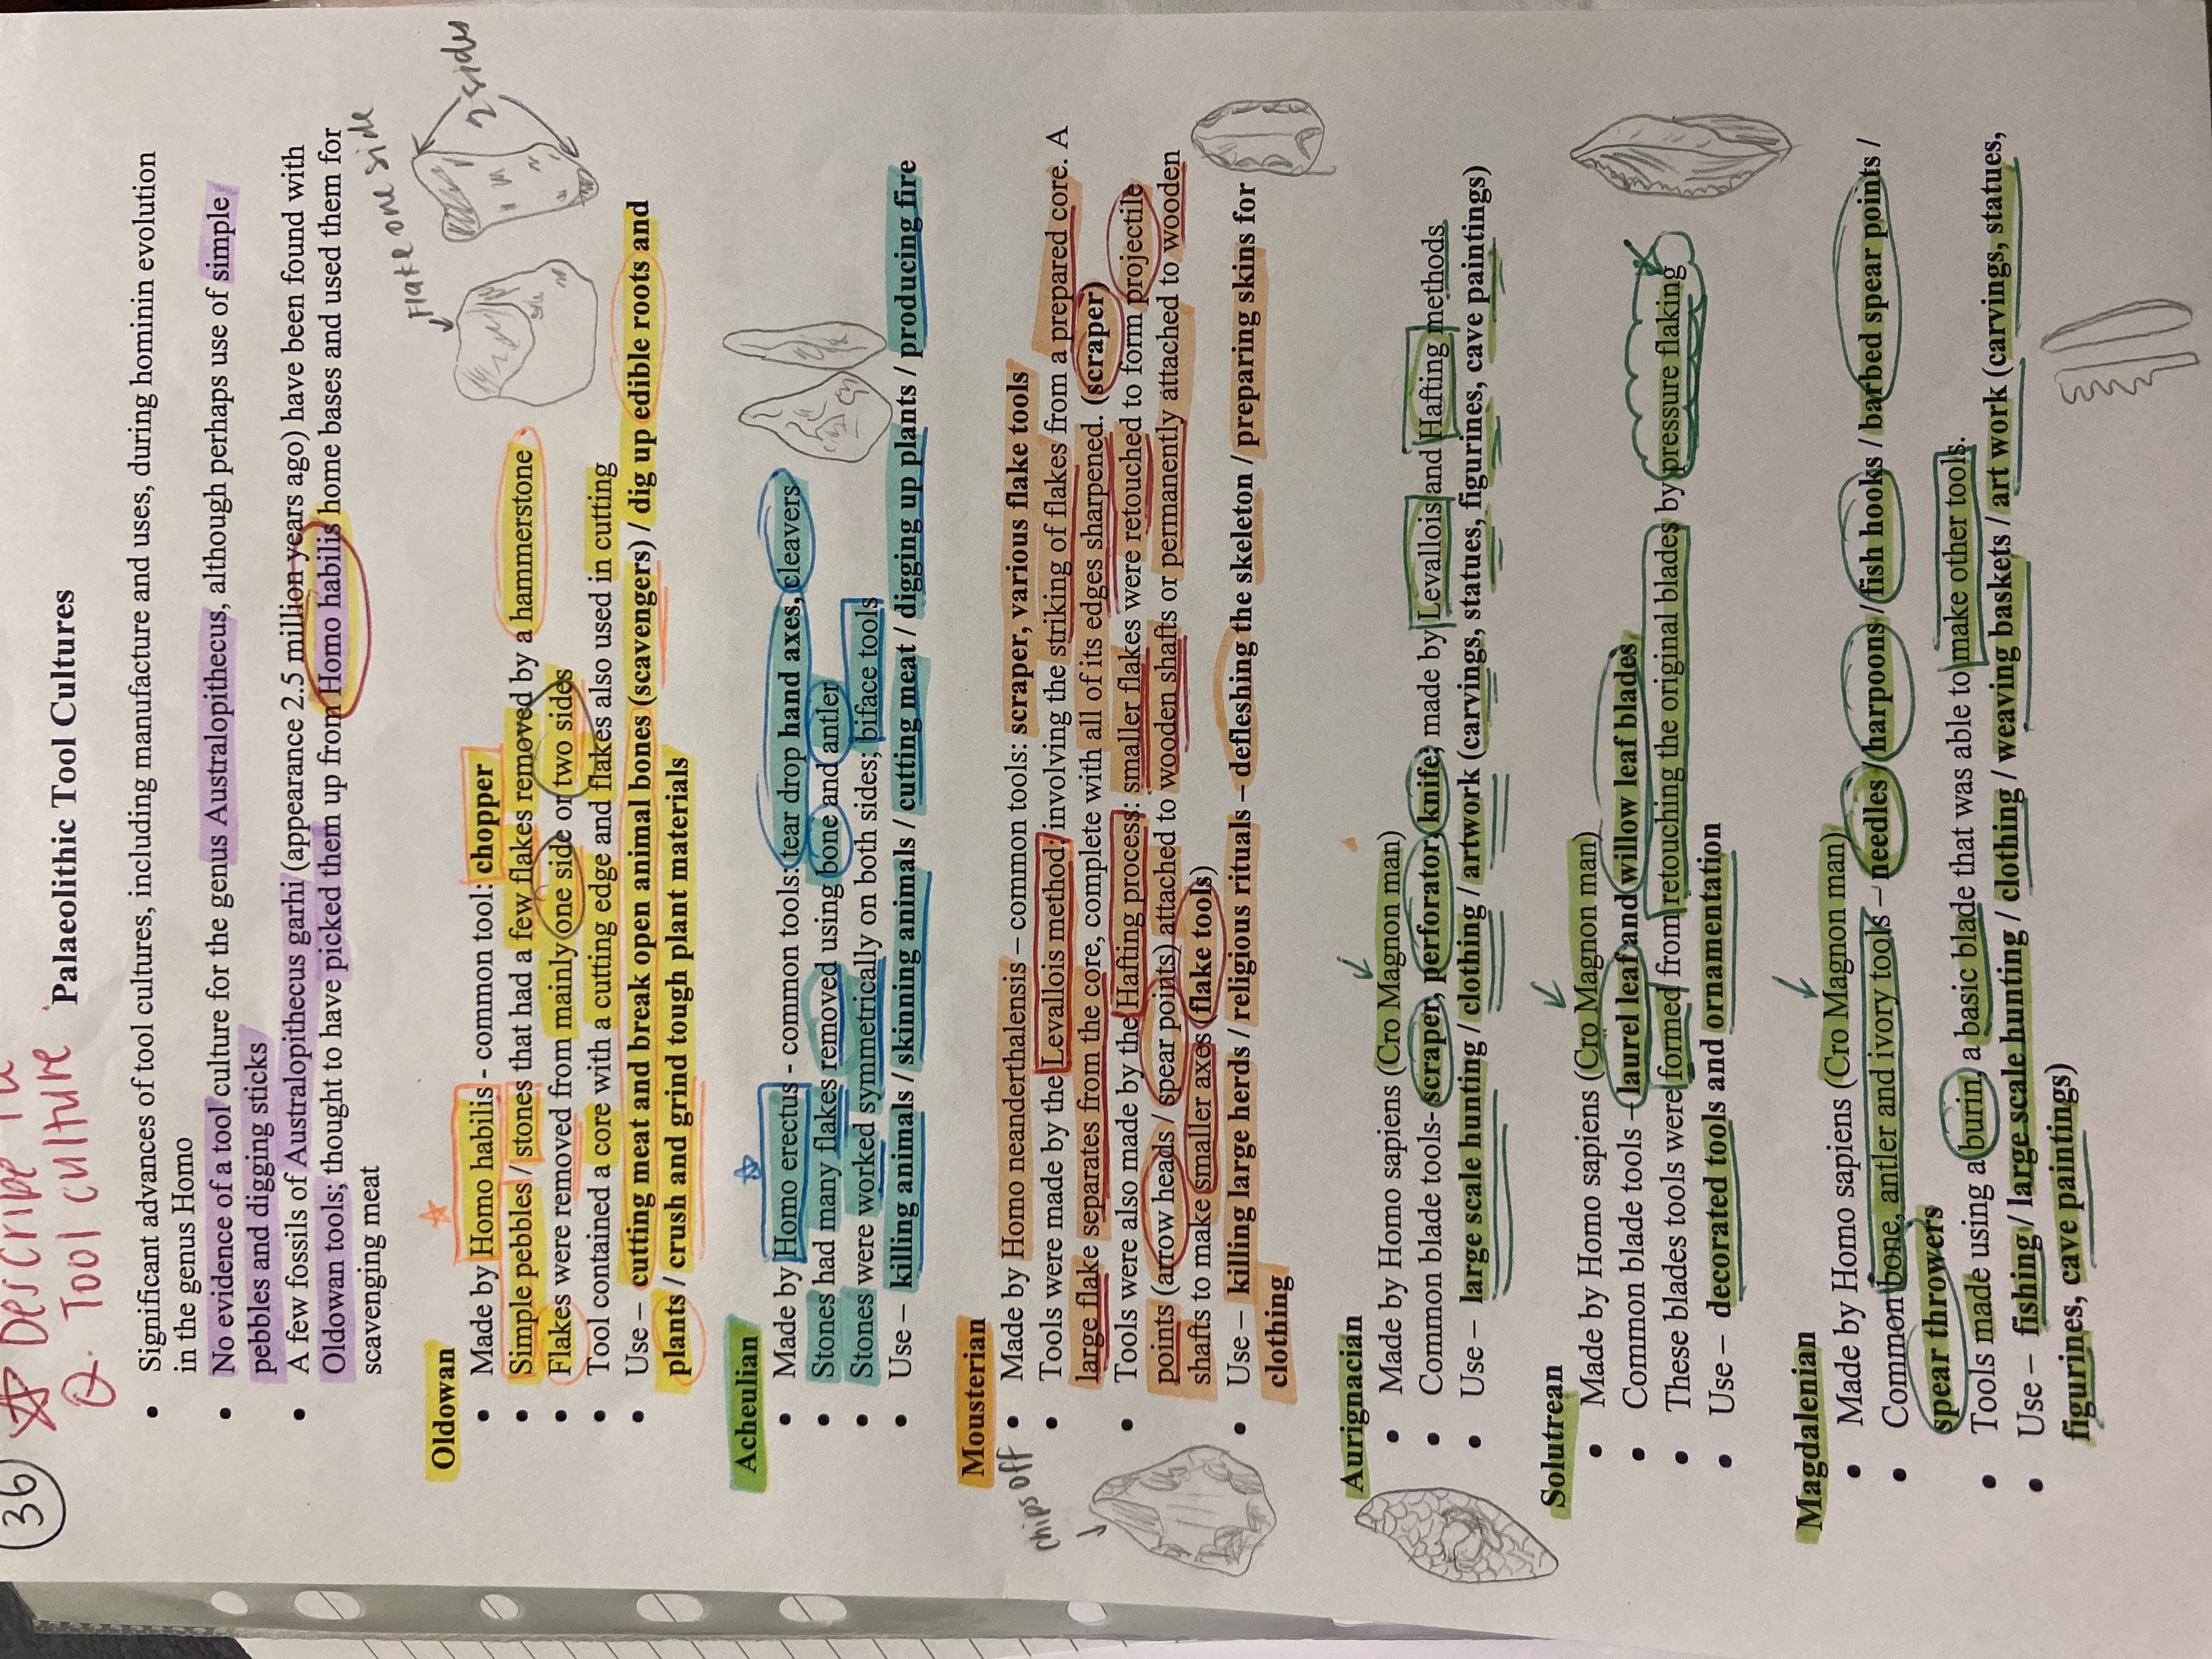 36
☆ Describe
Q. Tool culture
Palaeolithic Tool Cultures
• Significant advances of tool cultures, including manufacture and uses, during hominin evolution
in the genus Homo
• No evidence of a tool culture for the genus Australopithecus, although perhaps use of simple
pebbles and digging sticks
• A few fossils of Australopithecus garhi (appearance 2.5 million years ago) have been found with
Oldowan tools; thought to have picked them up from Homo habilis home bases and used them for
scavenging meat
Flake one side
2 sides
Oldowan
• Made by Homo habilis - common tool: chopper
• Simple pebbles / stones that had a few flakes removed by a hammerstone
• Flakes were removed from mainly one side or two sides
• Tool contained a core with a cutting edge and flakes also used in cutting
• Use – cutting meat and break open animal bones (scavengers) / dig up edible roots and
plants / crush and grind tough plant materials
Acheulian
• Made by Homo erectus - common tools: tear drop hand axes, cleavers
• Stones had many flakes removed using bone and antler
• Stones were worked symmetrically on both sides; biface tools
• Use – killing animals / skinning animals / cutting meat / digging up plants / producing fire
Mousterian
• Made by Homo neanderthalensis – common tools: scraper, various flake tools
• Tools were made by the Levallois method; involving the striking of flakes from a prepared core. A
large flake separates from the core, complete with all of its edges sharpened. (scraper)
• Tools were also made by the Hafting process: smaller flakes were retouched to form projectile
points (arrow heads / spear points) attached to wooden shafts or permanently attached to wooden
shafts to make smaller axes (flake tools)
• Use – killing large herds / religious rituals – defleshing the skeleton / preparing skins for
clothing
chips off
Aurignacian
• Made by Homo sapiens (Cro Magnon man)
• Common blade tools- scraper, perforator, knife; made by Levallois and Hafting methods
• Use – large scale hunting / clothing / artwork (carvings, statues, figurines, cave paintings)
Solutrean
• Made by Homo sapiens (Cro Magnon man)
• Common blade tools – laurel leaf and willow leaf blades
• These blades tools were formed from retouching the original blades by pressure flaking
• Use – decorated tools and ornamentation
Magdalenian
• Made by Homo sapiens (Cro Magnon man)
• Common bone, antler and ivory tools – needles / harpoons / fish hooks / barbed spear points /
spear throwers
• Tools made using a burin, a basic blade that was able to make other tools.
• Use – fishing / large scale hunting / clothing / weaving baskets / art work (carvings, statues,
figurines, cave paintings)